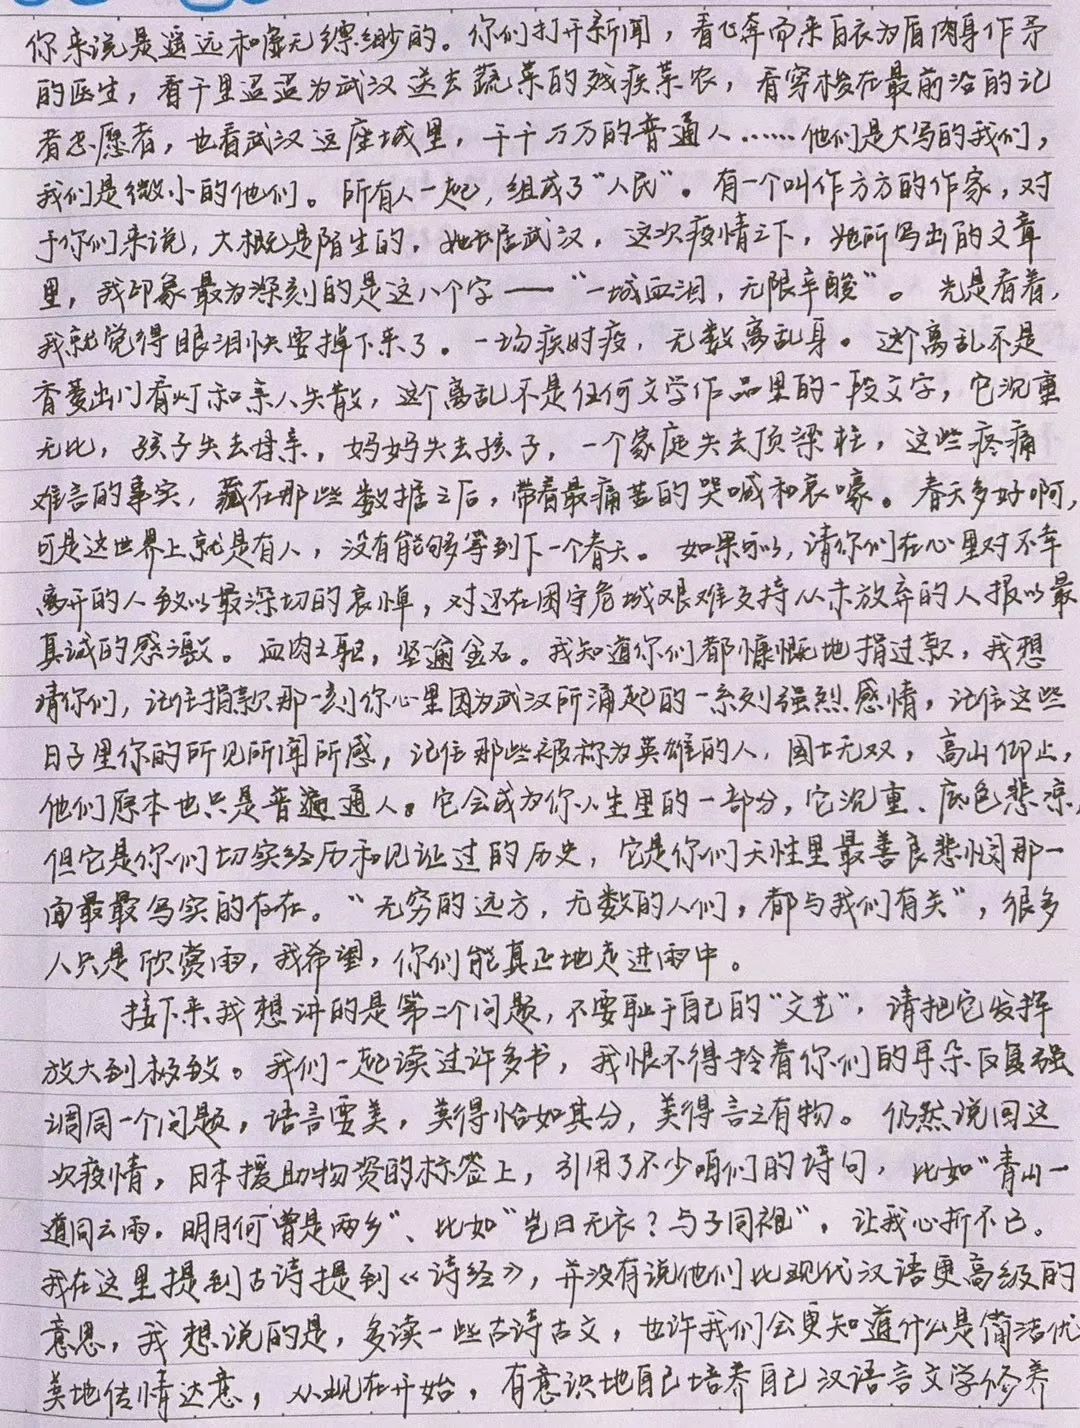 你来说是遥远和虚无缥缈的。你们打开新闻，看飞奔而来白衣为盾肉身作矛
的医生，看千里迢迢为武汉送去蔬菜的残疾菜农，看穿梭在最前沿的记
者志愿者，也看武汉这座城里，千千万万的普通人……他们是大写的我们，
我们是微小的他们。所有人一起，组成了“人民”。有一个叫作方方的作家，对
于你们来说，大概是陌生的，她长居武汉，这次疫情之下，她所写出的文章
里，我印象最为深刻的是这八个字——“一城血泪，无限辛酸”。光是看着，
我就觉得眼泪快要掉下来了。一场疾时疫，无数离乱身。这个离乱不是
香菱出门看灯和亲人失散，这个离乱不是任何文学作品里的一段文字，它沉重
无比，孩子失去母亲，妈妈失去孩子，一个家庭失去顶梁柱，这些疼痛
难言的事实，藏在那些数据之后，带着最痛苦的哭喊和哀嚎。春天多好啊，
可是这世界上就是有人，没有能够等到下一个春天。如果可以，请你们在心里对不幸
离开的人致以最深切的哀悼，对还在困守危城艰难支持从未放弃的人报以最
真诚的感激。血肉之躯，坚逾金石。我知道你们都慷慨地捐过款，我想
请你们，记住捐款那一刻你心里因为武汉所涌起的一系列强烈感情，记住这些
日子里你的所见所闻所感，记住那些被称为英雄的人，国士无双，高山仰止，
他们原本也只是普通人。它会成为你人生里的一部分，它沉重、底色悲凉，
但它是你们切实经历和见证过的历史，它是你们天性里最善良悲悯那一
面最最写实的存在。“无穷的远方，无数的人们，都与我们有关”，很多
人只是欣赏雨，我希望，你们能真正地走进雨中。
接下来我想讲的是第二个问题，不要耻于自己的“文艺”，请把它发挥
放大到极致。我们一起读过许多书，我恨不得拎着你们的耳朵反复强
调同一个问题，语言要美，美得恰如其分，美得言之有物。仍然说回这
次疫情，日本援助物资的标签上，引用了不少咱们的诗句，比如“青山一
道同云雨，明月何曾是两乡”、比如“岂曰无衣？与子同袍”，让我心折不已。
我在这里提到古诗提到《诗经》，并没有说他们比现代汉语更高级的
意思，我想说的是，多读一些古诗古文，也许我们会更知道什么是简洁优
美地传情达意，从现在开始，有意识地自己培养自己汉语言文学修养